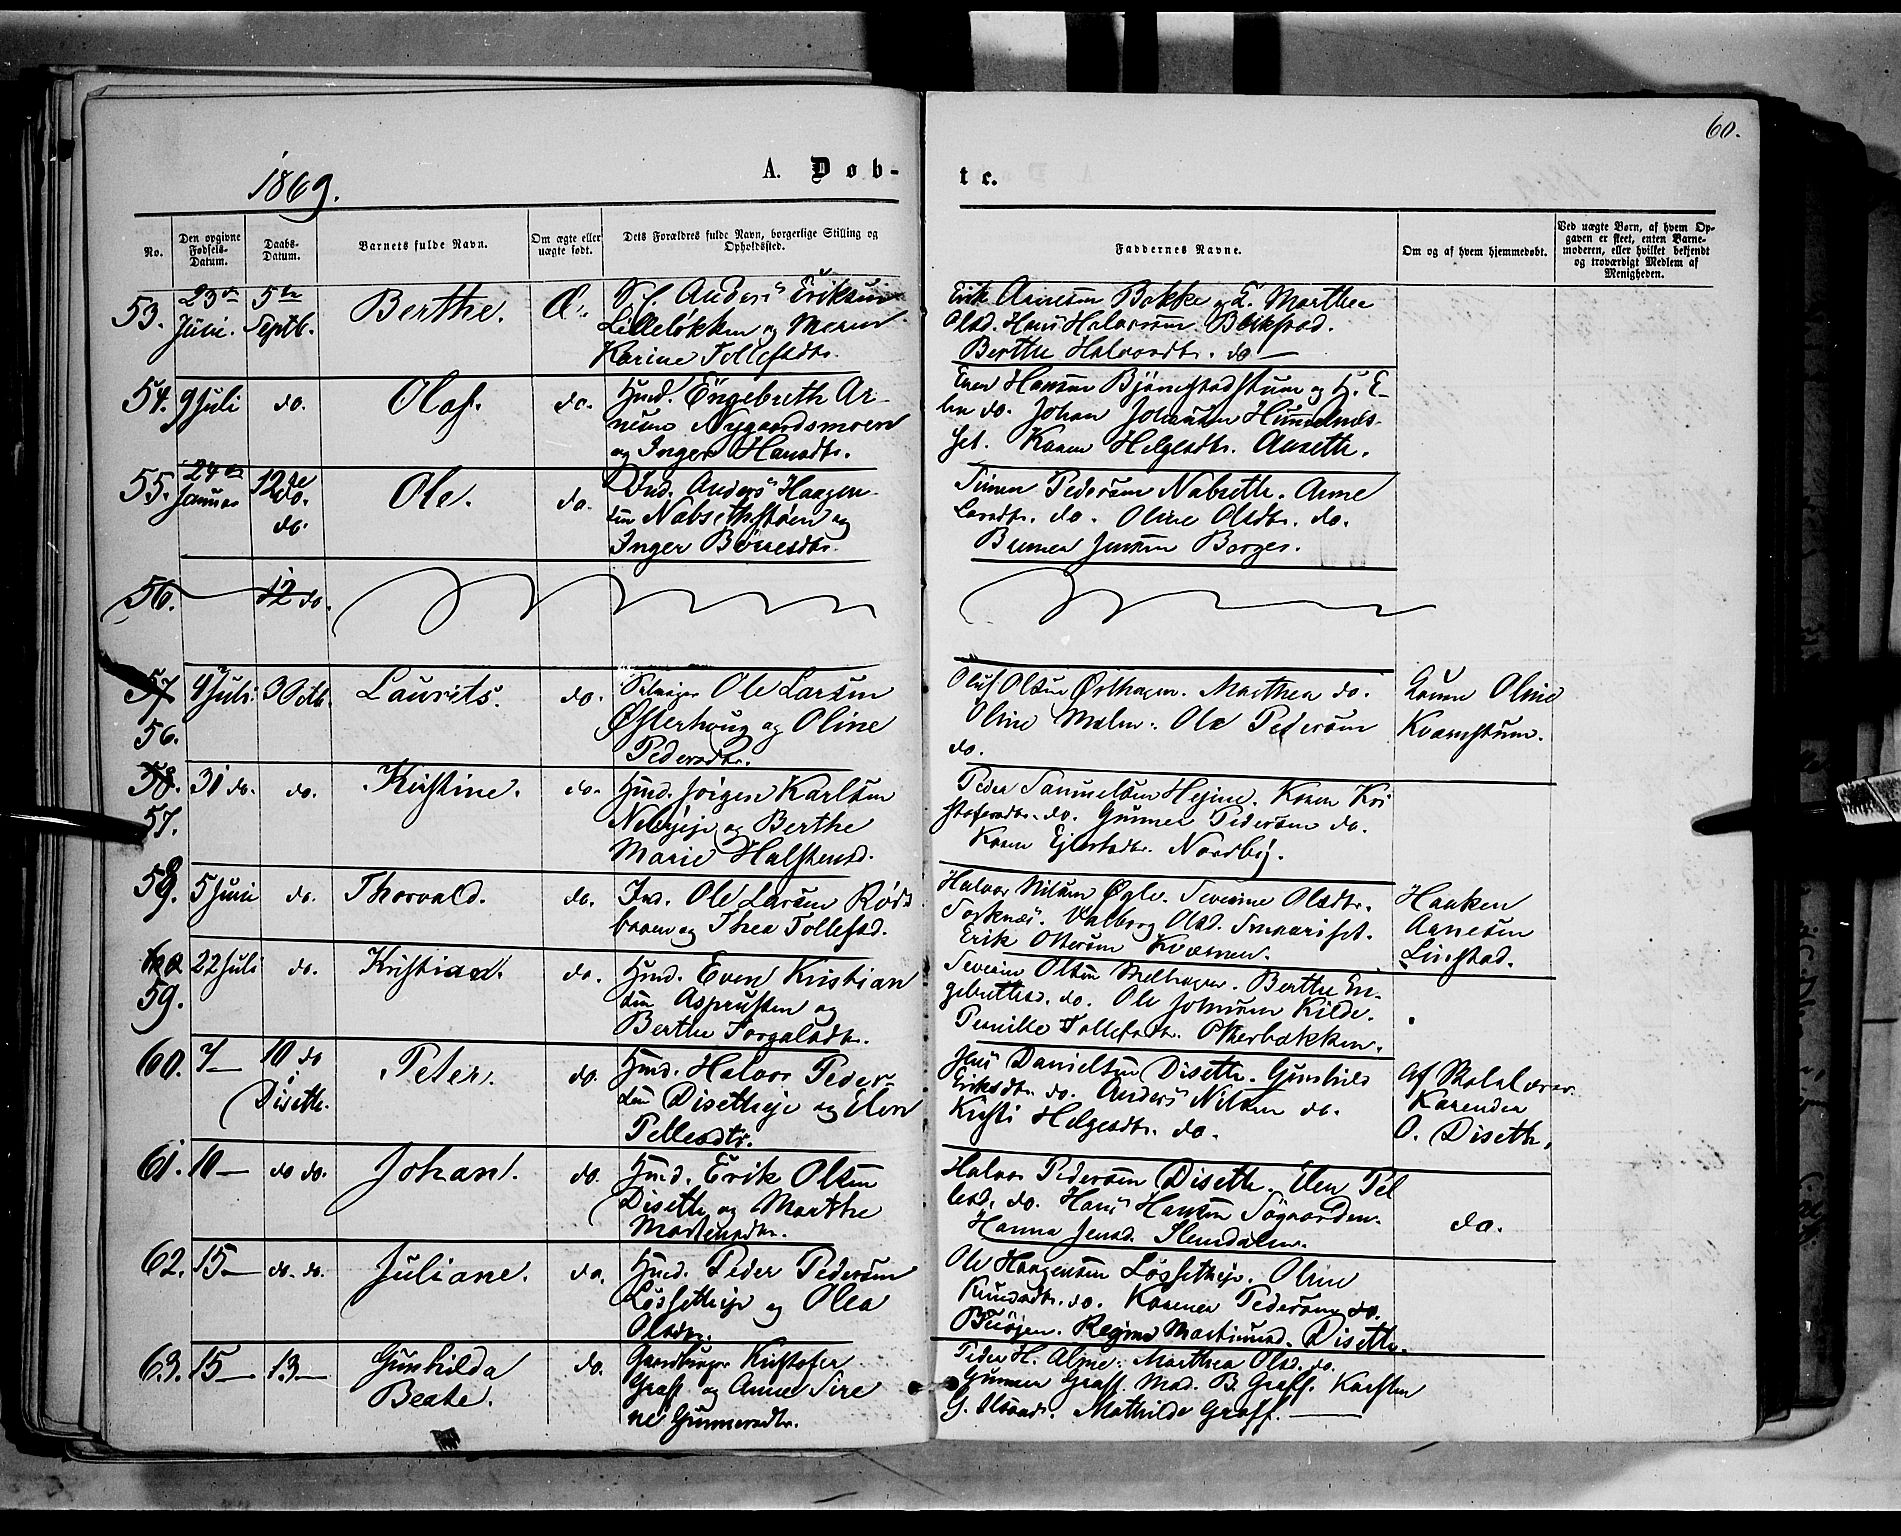 60.
1869.
A. Døb-
te.
No.
Den opgivne Fødsels-Datum.
Daabs-Datum.
Barnets fulde Navn.
Om ægte eller uægte født.
Dets Forældres fulde Navn, borgerlige Stilling og Opholdssted.
Faddernes Navne.
Om og af hvem hjemmedøbt.
Ved uægte Børn, af hvem Opgaven er skeet, enten Barnemoderen, eller hvilket bekjendt og troværdigt Medlem af Menigheden.
53. 23de Juni. 5te Septb. Berthe. Æ.
Anders Eriksen
Lilleløkken og Maren
Karine Tollefsdtr.
Erik Arnesen Bakke og Marthea
Olsd. Hans Halvorsen
Berthe Halvorsdtr. do
54. 9 Juli do. Olaf. do.
Hmd. Engebreth Ar-
nesen Nygaardsmoen
og Inger Hansdtr.
Even Hansen Bjørnstadstuen og E-
len do. Johan Johansen
set. Karen Helgesdtr. Aaseth.
55. 24de Januar 12te do. do. Ole. do.
Ind. Anders Haagen-
sen Nabsethstøen og
Inger Børresdtr.
Simen Pedersen Nabseth. Anne
Larsdtr. do. Oline Olsdtr. do.
Jensen Borger.
56. 12 do.
57 56. 4 Juli 3 Octb. Laurits. do.
Selveier Ole Larsen
Østerhaug og Oline
Pedersdtr.
Oluf Olsen Østhagen. Marthea do.
Oline Malm. Ole Pedersen
do.
Oline
Kværnstuen.
58. 57. 31 do. do. Kristine. do.
Hmd. Jørgen Karlsen
og Berthe
Marie Halstensd.
Peder Samuelsen Hejne. Karen Kri
stofersdtr. do. Gunner Pedersen do.
Karen Nordby.
58. 5 Juni do. Thorvald. do.
Ind. Ole Larsen Røds
braaen og Thea Tollefsd.
Halvor Nilsen Øgle. Severine Olsdtr.
Valborg Olsd.
Erik Ottersen Kværnen.
Haaken
Arnesen
Linstad.
60 59. 22 Juli do. Kristian. do.
Hmd. Even Kristian
sen Asprusten og
Berthe Torgalsdtr.
Severin Olsen Melhagen. Berthe En-
gebretsd. do. Ole Johnsen Kilde.
Pernille Tollefsdtr. Otherbækken.
60. 7 — 10 do Diseth. Peter. do.
Hmd. Halvor Peder-
sen Disetheje og Elen
Pellesdtr.
Jens Danielsen Diseth. Gunhild
Eriksdtr. do. Anders Nilsen do.
Kristi Helgesdtr. do.
af Skolelærer
Karenden
O. Diseth.
61. 10 — do do. Johan. do.
Hmd. Erik Olsen
Diseth og Marthe
Mortensdtr.
Halvor Pedersen Diseth. Elen Pel
lesd. do. Hans Hansen Søgaarden.
Hanna Jensd.
do.
62. 15 — do. do. Juliane. do.
Hmd. Peder Pedersen
Løssetheje og Olea
Olsdtr.
Ole Haagensen Løssetheje. Oline
Knudsdtr. do. Karenea Pedersen do.
Regine Martinusd. Diseth.
63. 15 — 13 — Gunhilda
Beate. do.
Gaardbruger Kristofer
Graff og Anne Sire
ne Gunnersdtr.
Peder H. Alme. Marthea Olsd. do.
Gunner Graff. Mad. B. Graff. Karsten
G. Mathilde Graff. —